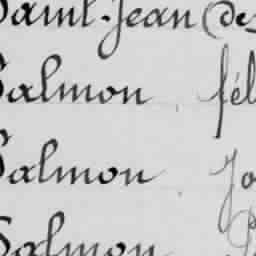 Saint-Jean (de
Salmon fél
Salmon Jo
Salmon